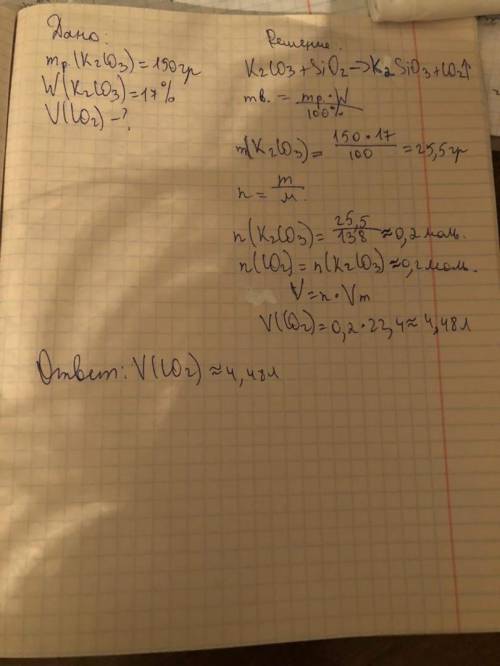 Дано:
mр.(K2CO3)=150гр
W(K2CO3)=17%
V(CO2)-?
Решение.
K2CO3+SiO2->K2SiO3+CO2↑
mв. = mр.·W/100%
m(K2CO3)= 150·17/100 =25,5гр
n= m/M.
n(K2CO3)= 25,5/138 ≈0,2 моль.
n(CO2)=n(K2CO3)≈0,2моль.
V=n·Vm
V(CO2)=0,2·22,4≈4,48л
Ответ: V(CO2)≈4,48л